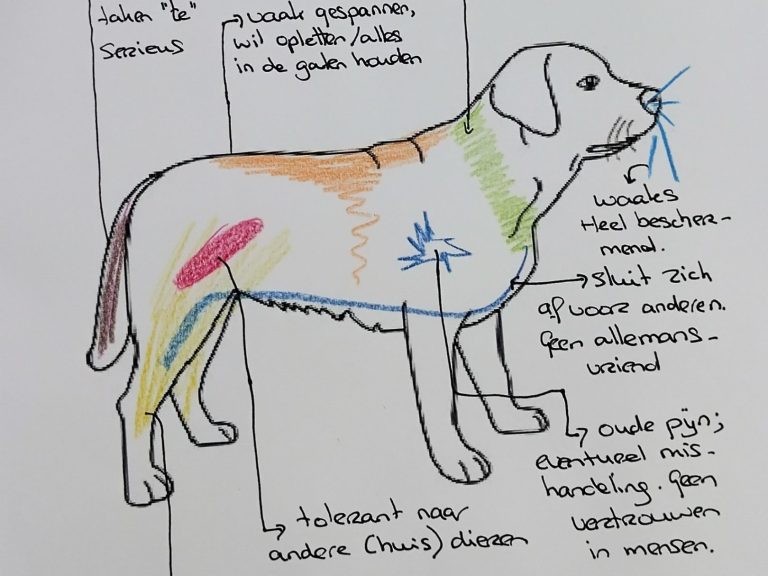 taken "te"
serieus
waak gespannen,
wil opletten/alles
in de gaten houden
waaks
Heel bescher-
mend.
sluit zich
af voor anderen.
Geen allemans-
vriend
oude pijn;
eventueel mis-
handeling. Geen
vertrouwen
in mensen.
tolerant naar
andere (huis) dieren